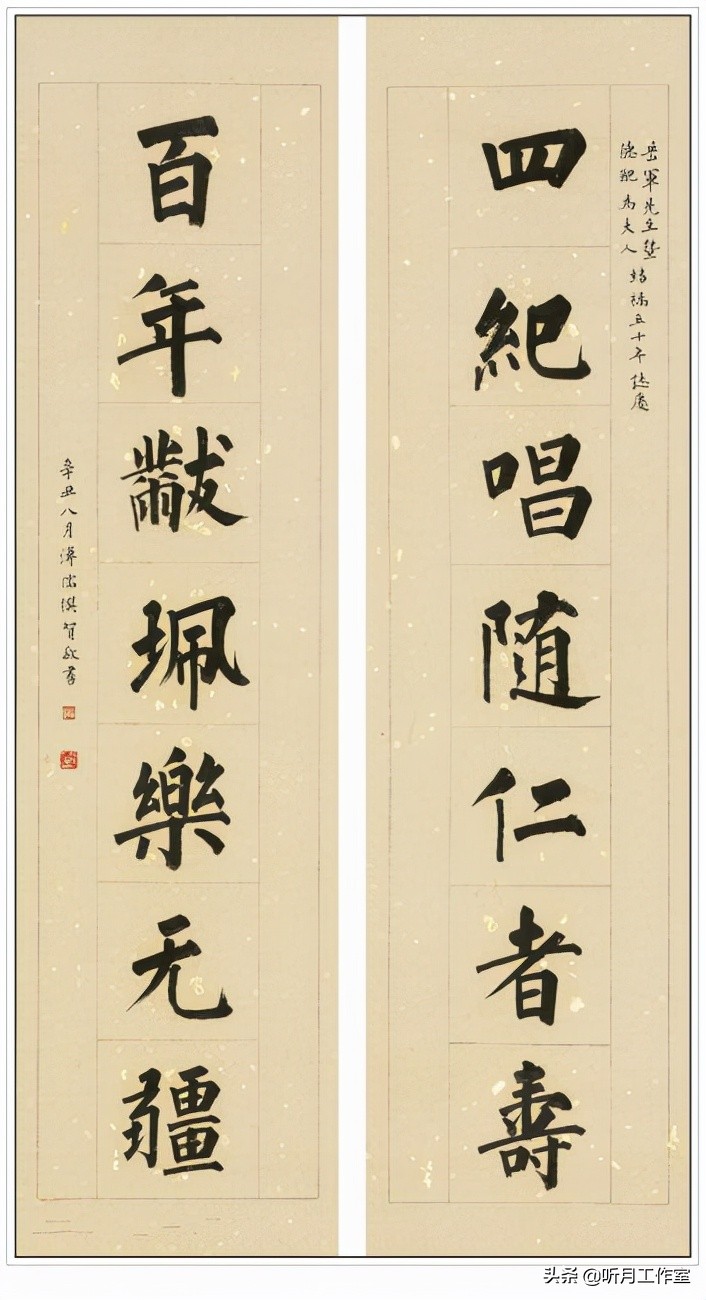 岳軍先生暨
德配馬夫人
結褵五十年慶
四紀唱随仁者壽
百年黻珮樂无疆
辛丑八月溥儒撰賀敬書
头条 @听月工作室